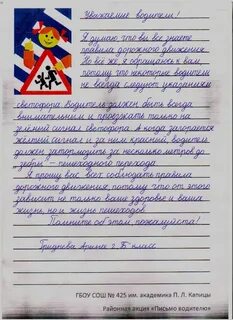 Уважаемые водители!
Я думаю что вы все знаете
правила дорожного движения.
Но все же я обращаюсь к вам,
потому что некоторые водители
не всегда следуют указаниям
светофора. Водитель должен быть всегда
внимательным и проезжать только на
зелёный сигнал светофора. А когда загорается
жёлтый сигнал и за ним красный, водитель
должен затормозить за несколько метров до
„зебры" - пешеходного перехода.
Я прошу вас всех соблюдать правила
дорожного движения, потому что от этого
зависит не только ваше здоровье и ваша
жизнь, но и жизнь пешеходов.
Помните об этом, пожалуйста!
Арина 2 „Б" класс
ГБОУ СОШ № 425 им. академика П. Л. Капицы
Районная акция «Письмо водителю»